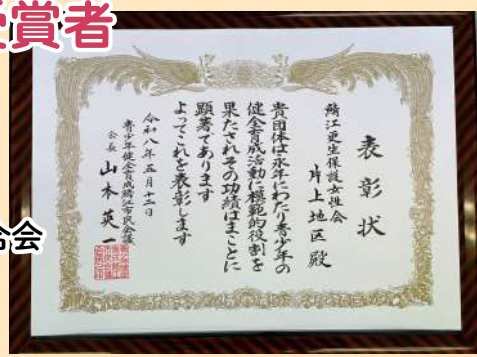 受賞者
表彰状
鯖江更生保護女性会
片上地区殿
貴団体は永年にわたり青少年の
健全育成活動に模範的役割を
果たされその功績はまことに
顕著であります
よってこれを表彰します
令和八年五月十二日
青少年健全育成鯖江市民会議
会長 山本英一
会